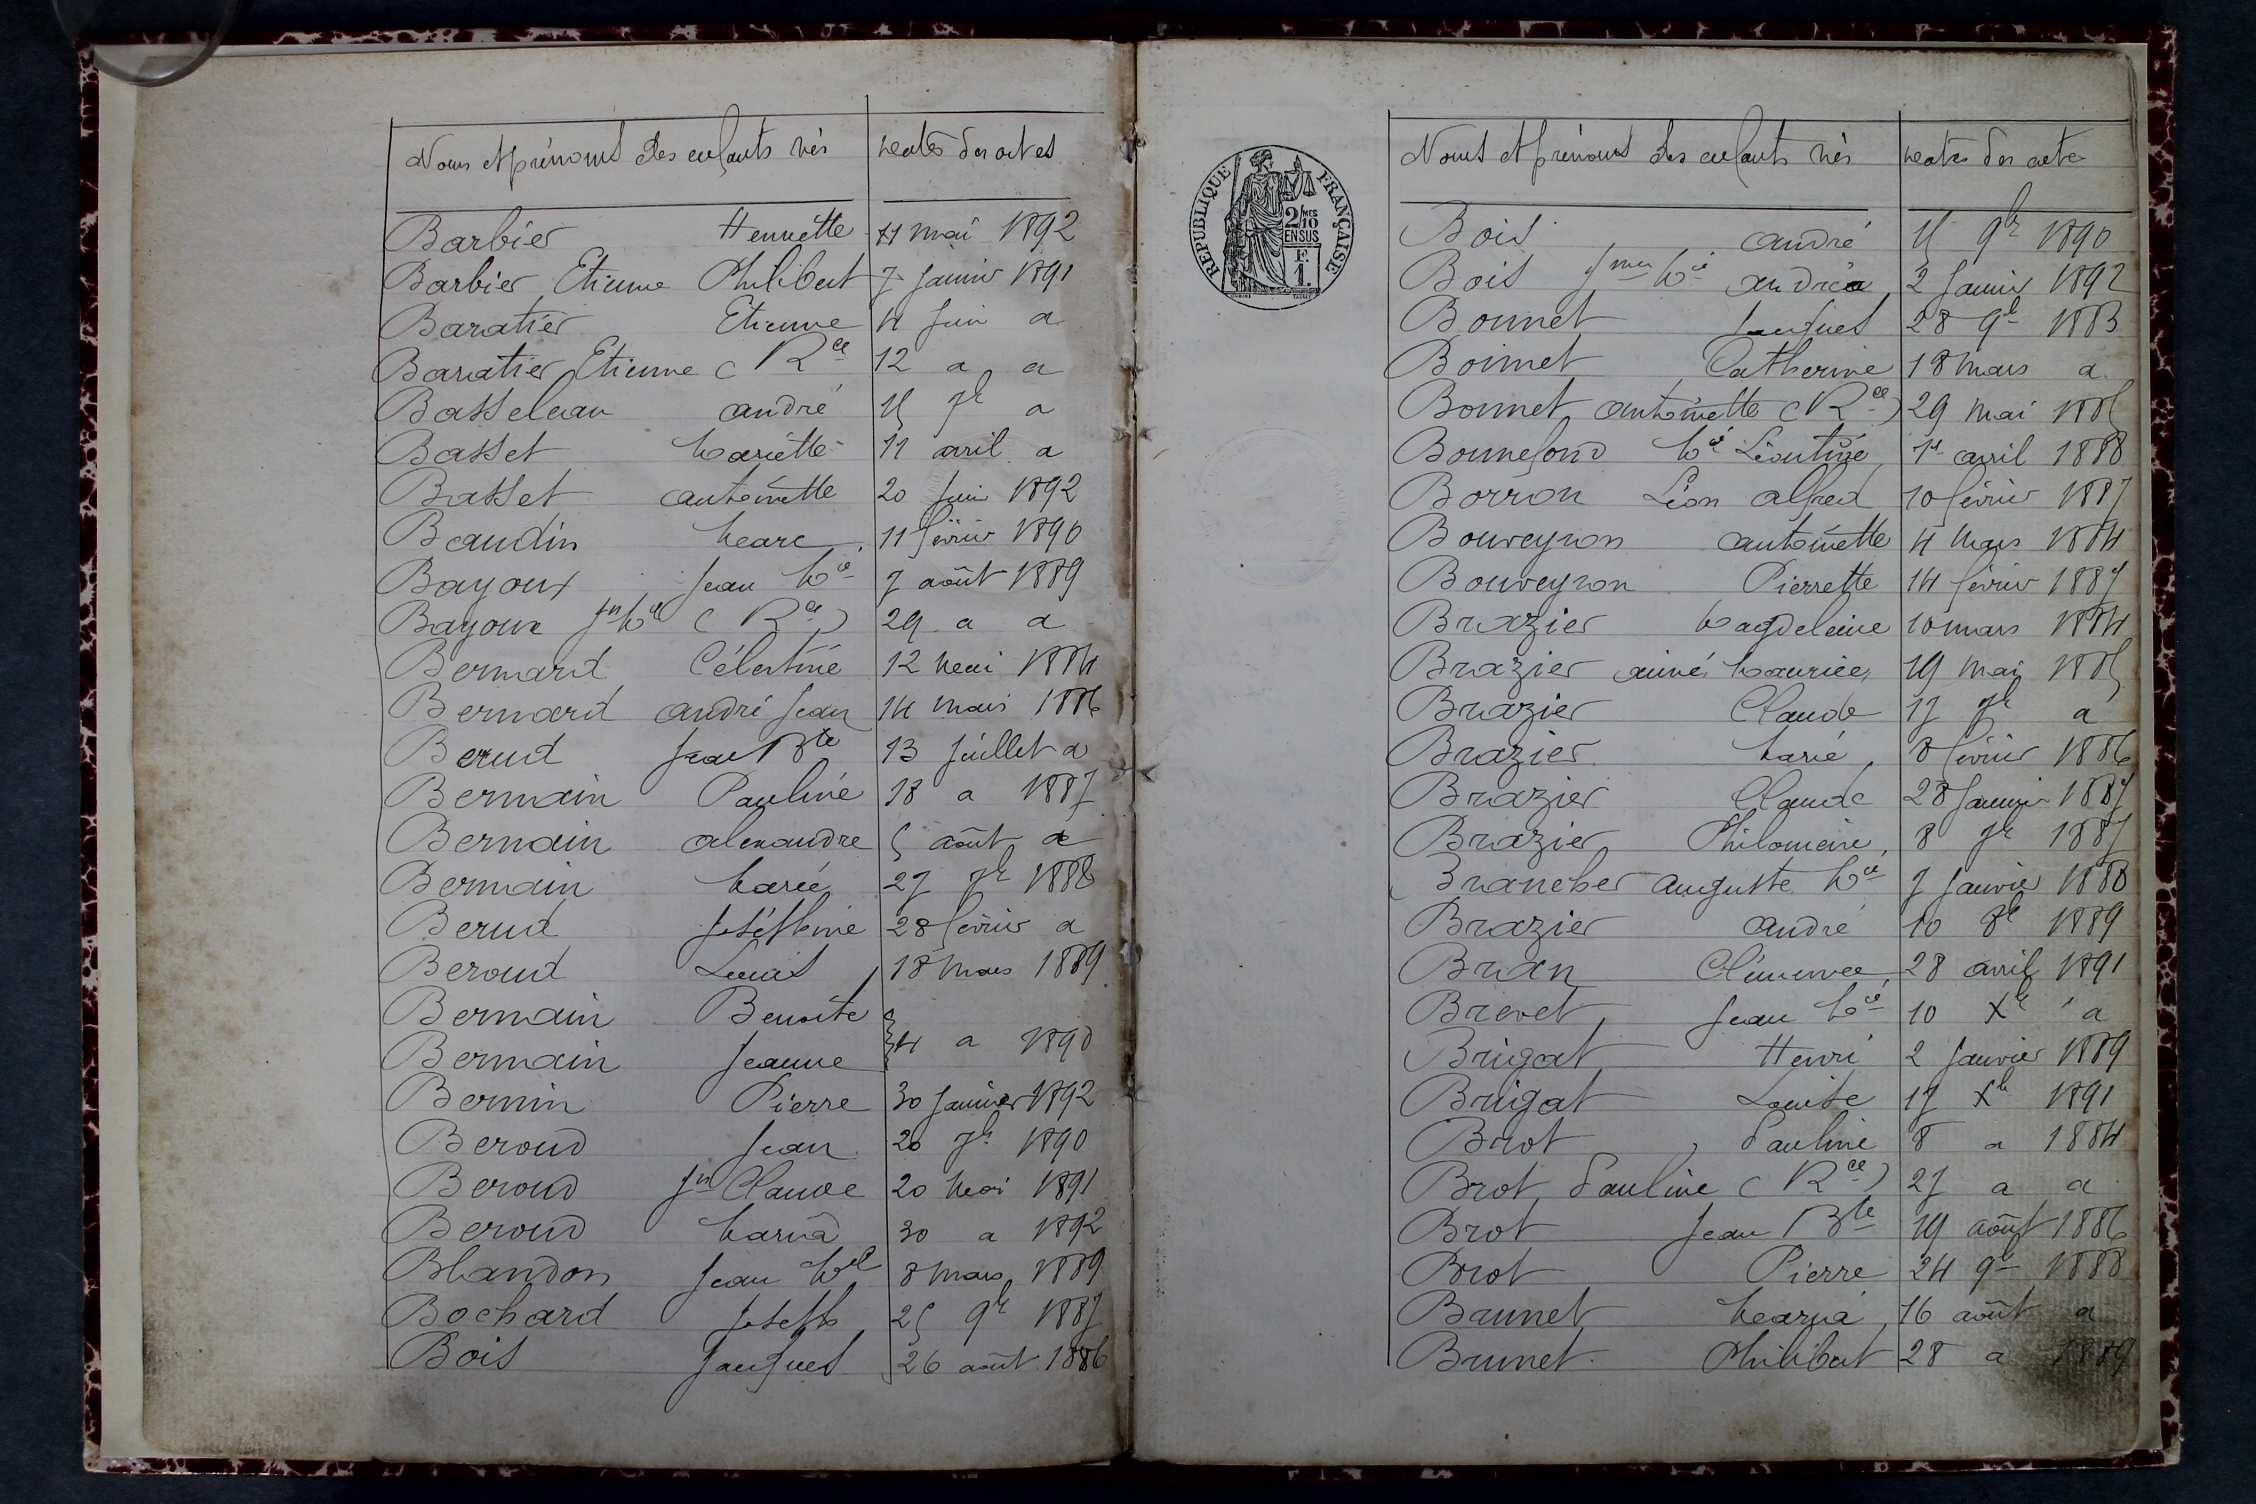 Noms et prénoms des enfants nés Dates des actes
Barbier Henriette 11 mai 1892
Barbier Etienne Philibert 7 Janvier 1891
Baratier Etienne 4 Juin a
Baratier Etienne (Rce 12 a a
Basseleau andré 15 7b a
Basset Mariette 11 avril a
Basset antoinette 20 Juin 1892
Baudin Marc 11 février 1890
Bayoux Jean Mie 7 août 1889
Bayoux Jn Mie (Rce) 29 a a
Bernard Célestine 12 Mai 1884
Bernard andré Jean 14 Mars 1886
Berud Jean Bte 13 Juillet a
Bermain Pauline 18 a 1887
Bernain alexandre 5 août a
Bermain Marie 27 7b 1888
Berud Joséphine 28 février a
Beroud Louis 18 Mars 1889
Bernain Benoîte
Bermain Jeanne 4 a 1890
Bernin Pierre 30 Janvier 1892
Beroud Jean 20 7b 1890
Beroud Jn Claude 20 Mai 1891
Beroud Maria 30 a 1892
Blandon Jean Mel 8 Mars 1889
Bochard Joseph 25 9b 1887
Bois Jacques 26 août 1886
REPUBLIQUE FRANÇAISE
2/10 MES
EN SUS
F.
1.
Noms et prénoms des enfants nés Dates des actes
Bois andré 15 9b 1890
Bois Mie andréa 2 Janvier 1892
Bonnet Jacques 28 9b 1883
Boimet Catherine 18 Mars a
Bonnet antoinette (Rce) 29 Mai 1885
Bonnefond Mie Léontine 1er avril 1888
Borron Léon alfred 10 février 1887
Bouveyron antoinette 4 Mars 1884
Bouveyron Pierrette 14 février 1887
Brazier Magdeleine 10 mars 1884
Brazier aimé Maurice 19 Mai 1885
Brazier Claude 17 7b a
Brazier Marie 8 février 1886
Brazier Claude 28 Janvier 1887
Brazier Philomène 8 7b 1887
Brancher auguste Mie 7 Janvier 1888
Brazier andré 10 8b 1889
Brian Clémence 28 avril 1891
Brevet Jean Mie 10 Xb a
Brigat Henri 2 Janvier 1889
Brigat Louise 17 Xb 1891
Brot Pauline 8 a 1884
Brot Pauline (Rce) 27 a a
Brot Jean Bte 19 août 1886
Brot Pierre 24 9b 1888
Brunet Maria 16 août a
Brunet Philibert 28 a 1889